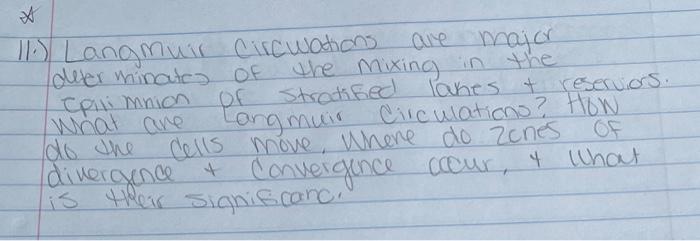 11.) Langmuir Circulations are major
determinates of the mixing in the
epilimnion of stratified lakes + reserviors.
What are Langmuir Circulations? How
do the cells move, where do zones of
divergence + convergence occur, & what
is their significanc.